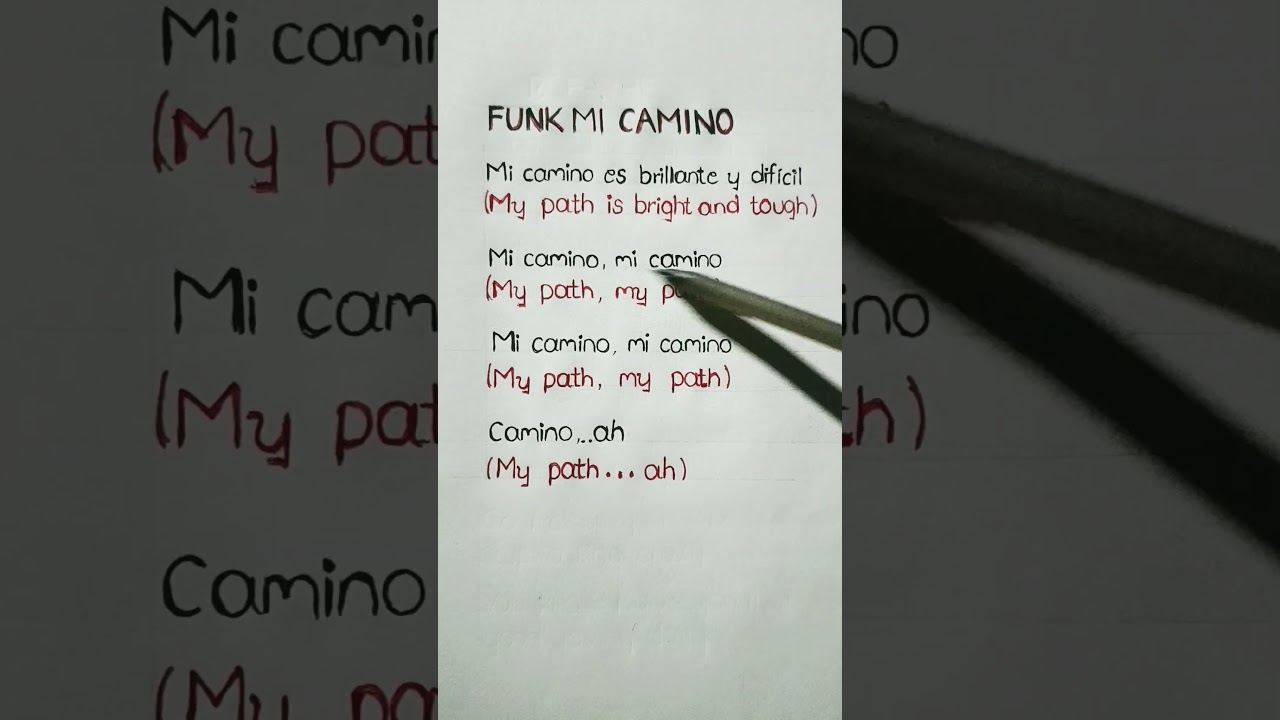 FUNK MI CAMINO
Mi camino es brillante y difícil
(My path is bright and tough)
Mi camino, mi camino
(My path, my
Mi camino, mi camino
(My path, my path)
Camino,..ah
(My path...ah)